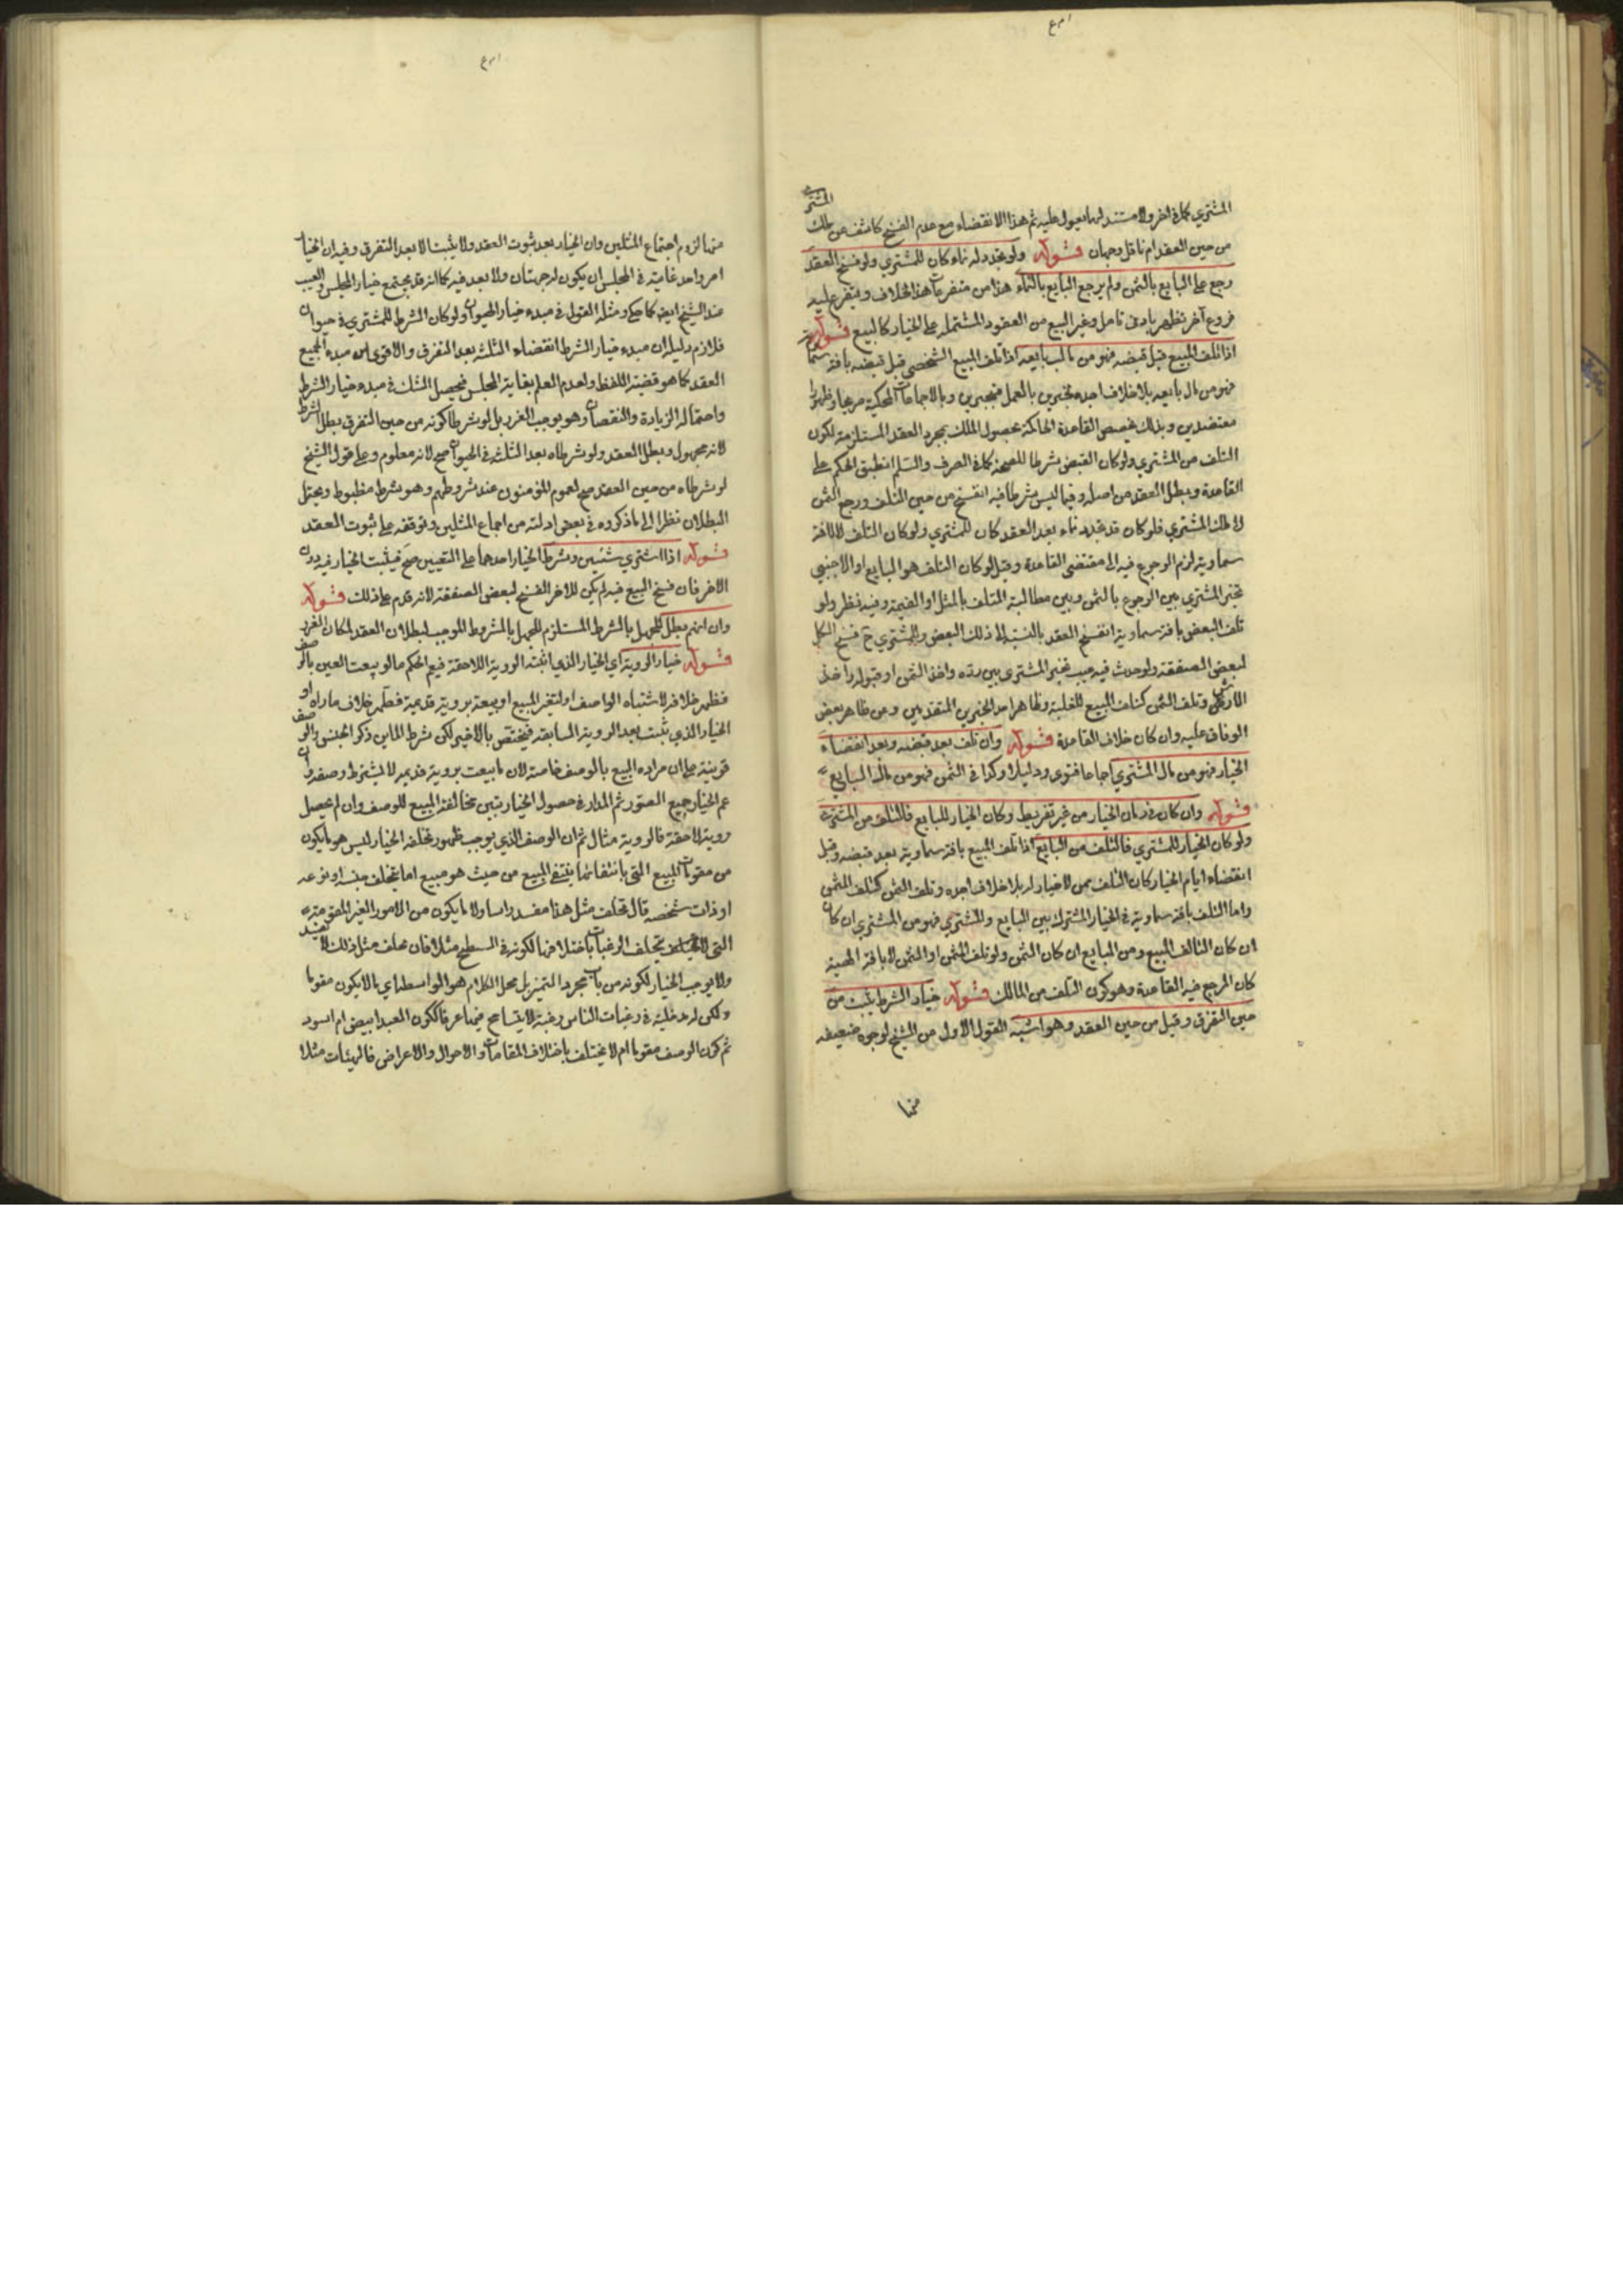 المشتري كما في اخر ولا مستند لهما يعول عليه ثم هذا الانقضاء مع عدم الفسخ كاشف عن ملك المشتري
من حين العقد ام ناقل وجهان قوله ولو تجدد له نماء كان للمشتري ولو فسخ العقد
رجع على البايع بالثمن ولم يرجع البايع بالنماء هذا من متفرعات هذا الخلاف ويتفرع عليه
فروع آخر تظهر بادنى تامل وغير البيع من العقود المشتملة على الخيار كالبيع قوله
اذا تلف المبيع قبل قبضه فهو من مال بايعه اذا تلف المبيع الشخصي قبل قبضه بافة سماوية
فهو من مال بايعه بلا خلاف اجده لخبرين بالعمل منجبرين وبالاجماعات المحكية صريحا وظهورا
معتضدين وبذلك تخصص القاعدة الحاكمة بحصول الملك بمجرد العقد المستلزمة لكون
التلف من المشتري ولو كان القبض شرطا للصحة كما في الصرف والسلم انطبق الحكم على
القاعدة وبطل العقد من اصله وفيما ليس شرطا فيه انفسخ من حين التلف ورجع الثمن
الى ملك المشتري فلو كان قد تجدد نماء بعد العقد كان للمشتري ولو كان التلف لا لافة
سماوية لزم الرجوع فيه الى مقتضى القاعدة وقيل لو كان المتلف هو البايع او الاجنبي
تخير المشتري بين الرجوع بالثمن وبين مطالبة المتلف بالمثل او القيمة وفيه نظر ولو
تلف البعض بافة سماوية انفسخ العقد بالنسبة الى ذلك البعض وللمشتري ح فسخ الكل
لبعض الصفقة ولو حدث فيه عيب تخير المشتري بين رده واخذ الثمن او قبوله واخذ
الارش وتلف الثمن كتلف المبيع للغلبة وظاهر احد الخبرين المتقدمين ومن ظاهر بعض
الوفاق عليه وان كان خلاف القاعدة قوله وان تلف بعد قبضه وبعد انقضاء
الخيار فهو من مال المشتري اجماعا فتوى ودليلا وكذا في الثمن فهو من مال البايع
قوله وان كان في زمان الخيار من غير تفريط وكان الخيار للبايع فالتلف من المشتري
ولو كان الخيار للمشتري فالتلف من البايع اذا تلف المبيع بافة سماوية بعد قبضه وقبل
انقضاء ايام الخيار كان التلف ممن لا خيار له بلا خلاف اجده وتلف الثمن كتلف المثمن
واما التلف بافة سماوية في الخيار المشترك بين البايع والمشتري فهو من المشتري ان كان
ان كان التالف المبيع ومن البايع ان كان الثمن ولو تلف المثمن او الثمن لا بافة الهية
كان المرجع فيه القاعدة وهو كون التلف من المالك قوله خيار الشرط يثبت من
حين التفرق وقيل من حين العقد وهو اشبه القول الاول من الشيخ لوجوه ضعيفة
منها
منها لزوم اجتماع المثلين وان الخيار بعد ثبوت العقد ولا يثبت الا بعد التفرق وفيه ان الخيار
امر واحد غايته في المجلس ان يكون له جهتان ولا بعد فيه كما انه قد يجتمع خيار المجلس والعيب
عند الشيخ ايضا كما حكي ومثله القول في مبدء خيار الحيوان ولو كان الشرط للمشتري في حيوان
فلازم دليله ان مبدء خيار الشرط انقضاء الثلثة بعد التفرق والاقوى ان مبدء الجميع
العقد كما هو قضية اللفظ ولعدم العلم بغاية المجلس فيحصل الشك في مبدء خيار الشرط
واحتماله الزيادة والنقصان وهو يوجب الغرر بل لو شرطا كونه من حين التفرق بطل الشرط
لانه مجهول وبطل العقد ولو شرطاه بعد الثلثة في الحيوان صح لانه معلوم وعلى قول الشيخ
لو شرطاه من حين العقد صح لعموم المؤمنون عند شروطهم وهو شرط مظبوط ويحتمل
البطلان نظرا الى ما ذكروه في بعض ادلته من اجماع المثلين وتوقفه على ثبوت العقد
قوله اذا اشترى شيئين وشرط الخيار احدهما على التعيين صح فيثبت الخيار فيه دون
الاخر فان فسخ البيع فيه لم يكن للاخر الفسخ لبعض الصفقة لانه قدم على ذلك قوله
وان ابهم بطل للجهل بالشرط المستلزم للجهل بالمشروط الموجب لبطلان العقد لمكان الغرر
قوله خيار الروية اي الخيار الذي اثبته الروية اللاحقة فيعم الحكم ما لو بيعت العين بالوصف
فظهر خلافه لاشتباه الواصف او لتغير المبيع او بيعة بروية قديمة فظهر خلاف ما راه او
الخيار الذي ثبت بعد الروية السابقة فيختص بالاخير لكن شرط الماين ذكر الجنس والوصف
قرينة على ان مراده المبيع بالوصف خاصة لان ما بيعت بروية قديمة لا يشترط وصفه وان
عم الخيار جميع الصور ثم المدار في حصول الخيار بتبين مخالفة المبيع للوصف وان لم يحصل
روية لاحقة فالروية مثال ثم ان الوصف الذي يوجب ظهور تخلفه الخيار ليس هو ما يكون
من مقومات المبيع التي بانتفائها ينتفي المبيع من حيث هو مبيع اما بتخلف جنسه او نوعه
او ذات شخصه قال تخلف مثل هذا مفسد راسا ولا ما يكون من الامور الغير المقومة
التي لا يختلف بتخلف الرغبات باختلافها لكونه في السطح مثلا فان تخلف مثل ذلك لا يفسد
ولا يوجب الخيار لكونه من باب مجرد التميز بل محل الكلام هو الواسطة اي ما لا يكون مقوما
ولكن له مدخلية في رغبات الناس رغبة لا يتسامح فيها عرفا ككون العبد ابيض ام اسود
ثم كون الوصف مقوما ام لا يختلف باختلاف المقامات والاحوال والاعراض فالهيئات مثلا